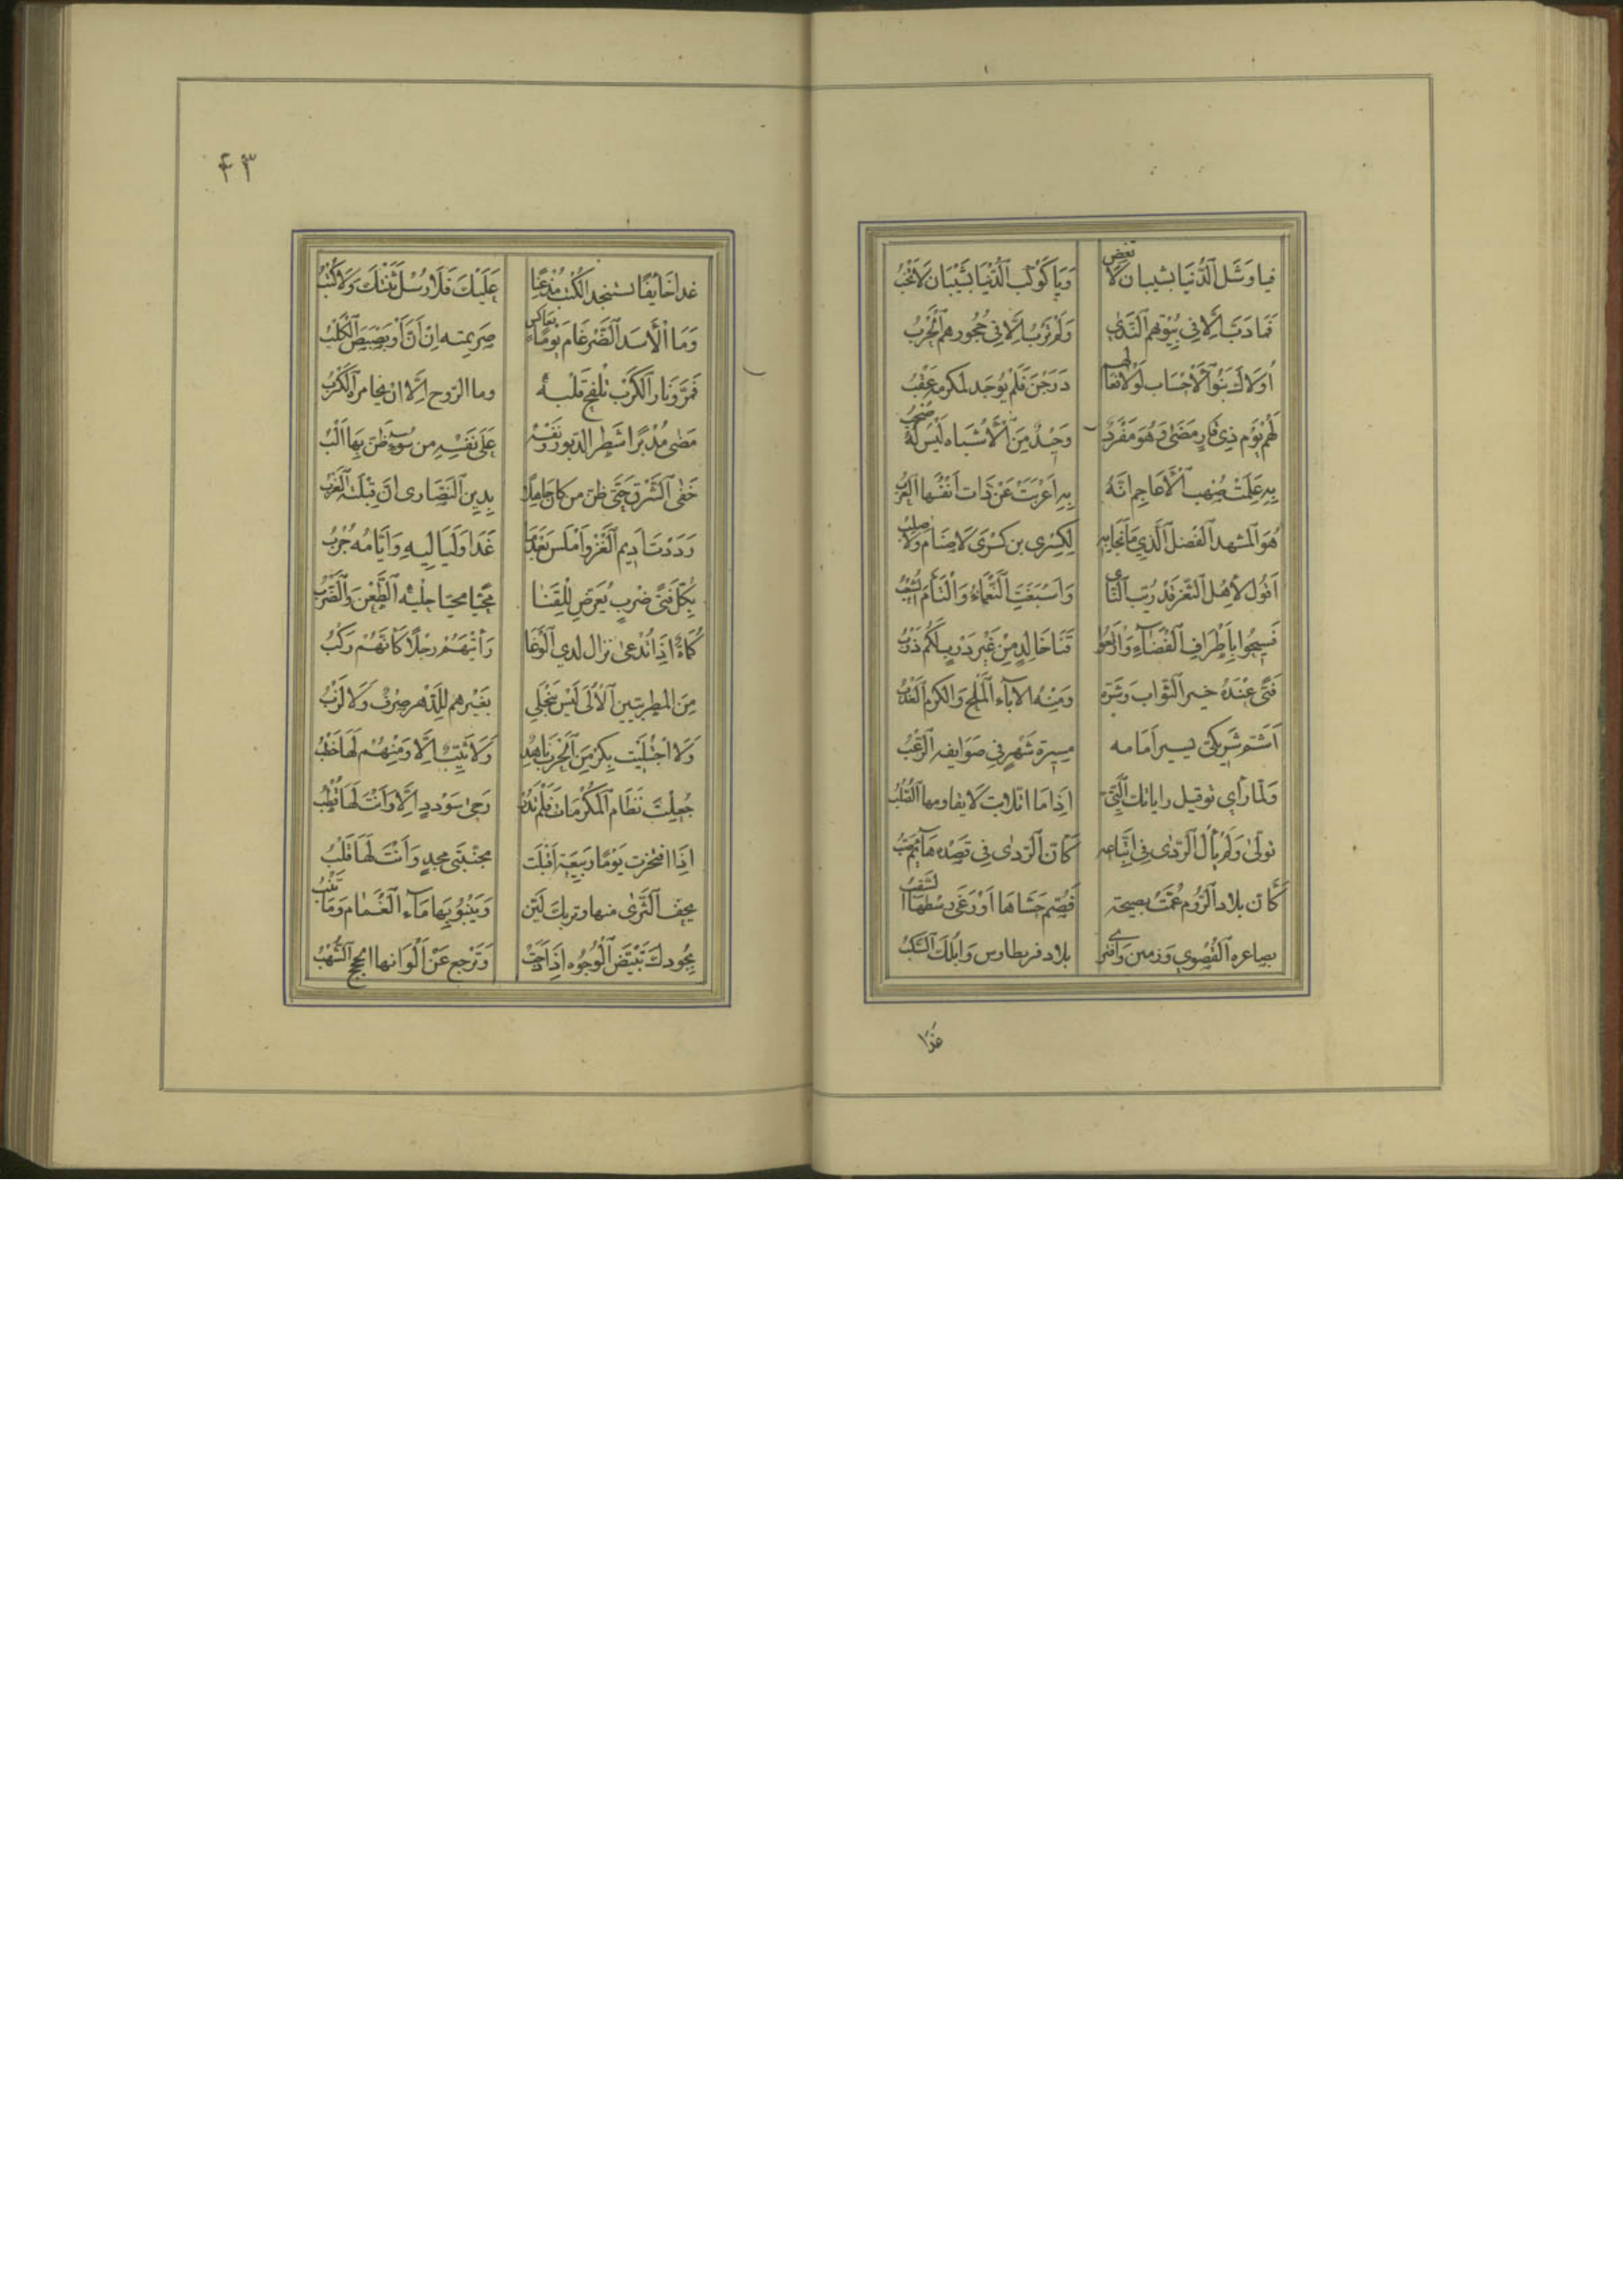 فيا وَشَل الدُّنيَا بشيبان لا تغض وَيَا كَوْكَب الدُّنْيَا بشَيْبَان لا تَخْبُ
فَمَا دَبَّ إلّا في بُيُوتهم النَّدى وَلَمْ تَرْبُ إلّا في حُجُورهم الحَرْبُ
أولاك بَنُو الأحْسَاب لَوْلا فعالهم دَرَجْنَ فَلَمْ يُوجَد لمكرمة عَقْبُ
لَهُم يَوْم ذِي قار مَضَى وَهُوَ مُفْرَدٌ وَحِيدٌ مِنَ الأشْبَاه لَيْسَ لَهُ صَحْبُ
بِهِ عَلِمَتْ صُهْب الأعَاجِم أنَّهُ بِهِ أعْرَبَتْ عَنْ ذَات أنْفُسها العُرْبُ
هُوَ المشهد الفَصْل الَّذِي مَا نَجَا بِهِ لِكِسْرَى بن كِسْرَى لا سَنَام وَلا صُلْبُ
أقُول لأهْل الثَّغْر قَدْ رُئِبَ الثَّأى وَأسْبَغَت النَّعْمَاءُ وَالْتَأمَ الشَّعْبُ
فَسِيحُوا بِأطْرَافِ الفَضَاءِ وَأرْتِعُوا قَنَا خَالِدٍ مِنْ غَيْرِ دَرْبٍ لَكُم دَرْبُ
فَتًى عِنْدَهُ خير الثّوَاب وَشَرّه وَمِنْهُ الإباء المِلْح وَالكرم العَذْبُ
أشَمّ شَرِيكيّ يسير أمَامه مسيرة شَهْرٍ فِي صَوَايفه الرّعْبُ
وَلَمَّا رَأى توفيل راياتك الَّتِي إذَا مَا اتلأبّت لا يقاومها الصُّلْبُ
تولّى وَلَمْ يَأل الرّدى في اتّباعه كَأنّ الرّدى فِي قَصْده هَائم صَبُّ
كَأنّ بلاد الرُّوم عُمَّتْ بصيحة فَضَمّت حَشَاهَا أوْ رَغَى وَسْطَهَا السَّقْبُ
بصاغرة القُصْوى وَزمين وَاقترى بلاد قرنطاوس وَابلك السّكْبُ
غدا
٤٣
غدا خَائِفًا يستنجد الكُتْبَ مُذْعِنًا عَلَيْكَ فَلا رُسْلٌ ثَنَتْكَ وَلا كُتْبُ
وَمَا الأسَد الضِّرْغَام يَوْمًا بعاكس صَرِيمته إنْ أنَّ أوْ بَصْبَصَ الكَلْبُ
فَمَرَّ وَنَار الكَرْبِ تَلْفَحُ قَلْبَهُ وما الرّوح إلّا ان يخامره الكَرْبُ
مَضَى مُدْبِرًا شَطْر الدّبور وَنَفْسه عَلَى نَفْسِهِ مِن سُوء ظَنّ بِهَا ألْبُ
جَفَى الشَّرْقَ حَتَّى ظَنَّ مَن كان جَاهِلًا بِدِين النَّصَارى أنّ قِبْلَتَهُ الغَرْبُ
رَدَدْتَ أدِيم الغَزْو أمْلَسَ بَعْدَمَا غَدَا وَلَيَالِيهِ وَأيَّامُه جُرْبُ
بِكُلّ فَتى ضَرْبٍ يُعَرِّض لِلْقَنَا مُحَيًّا مُحَلًّى حَلْيُه الطَّعْنُ وَالضَّرْبُ
كُمَاةٌ إذَا تُدْعى نزال لدى الوَغَا رَأيْتَهُمْ رَجْلًا كَأنَّهُمْ رَكْبُ
مِنَ المطريّين الأُلَى لَيْسَ يَنْجَلِي بغَيْرهم لِلدَّهر صِرْفٌ وَلا لَزْبُ
وَلا اجْتُلِيَت بِكْرٌ مِنَ الحَرْبِ نَاهِدٌ وَلا ثَيّبٌ إلّا وَمِنْهُمْ لَهَا خَطْبُ
جُعِلْتَ نِظَامَ المَكْرُمَاتِ فَلَمْ تَدُرْ رَحَى سُودَدٍ إلّا وَأنْتَ لَهَا قُطْبُ
إذَا افتَخَرت يَوْمًا رَبِيعَة أقْبَلَت مجنّبتي مجدٍ وَأنْتَ لَهَا قَلْبُ
يجفّ الثَّرَى منها وتربك لَيّن وَيَنْبُو بِهَا مَاء الغَمَام وَمَا تَنْبُو
بِجُودك تَبْيَضّ الوُجُوه إذَا دَجَتْ وَتَرْجِعُ عَنْ ألْوَانها الحجج الشُّهْبُ